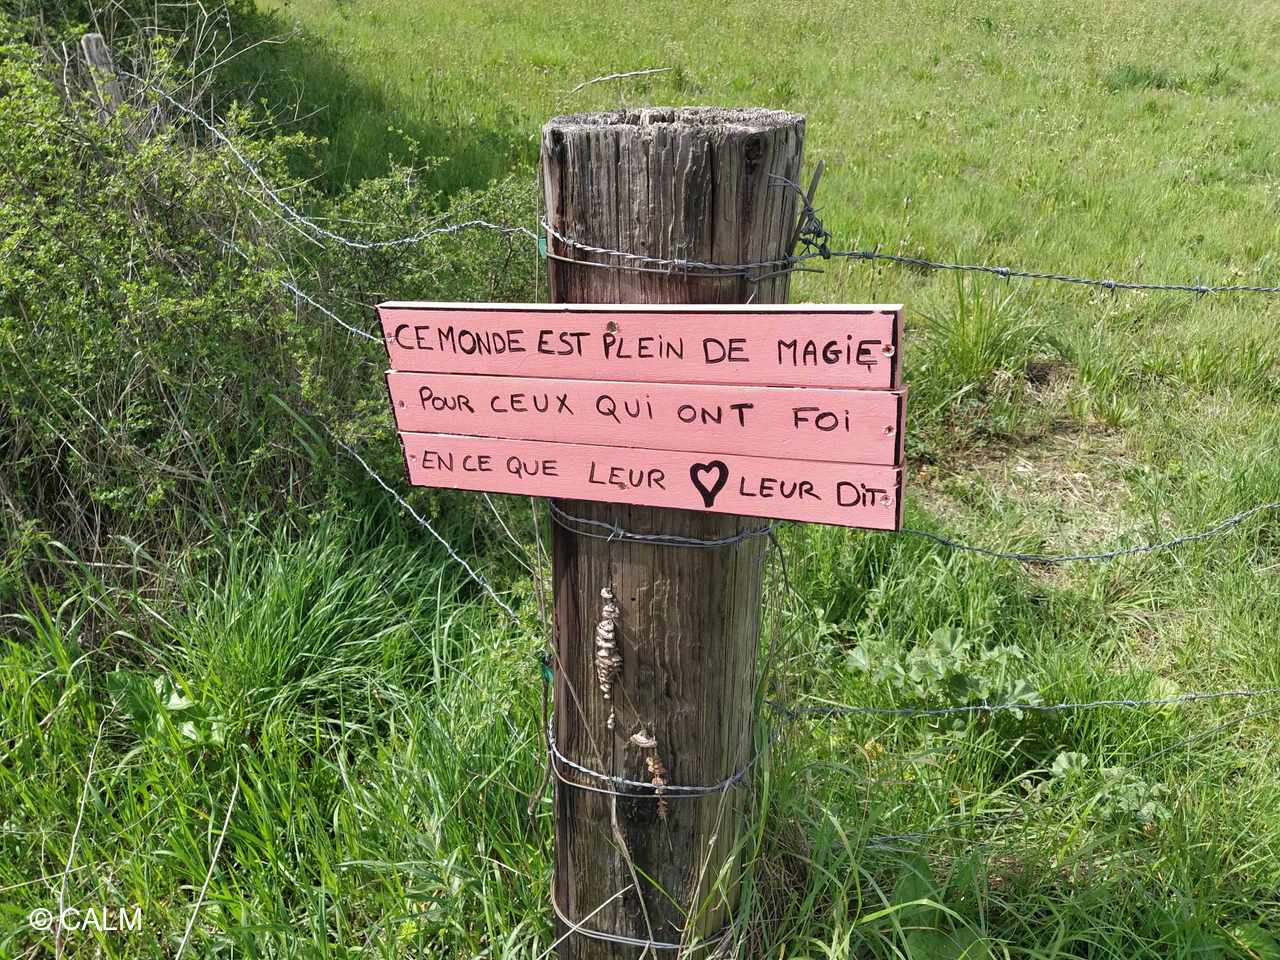 CE MONDE EST PLEIN DE MAGIE
POUR CEUX QUI ONT FOI
EN CE QUE LEUR ♡ LEUR DIT
© CALM